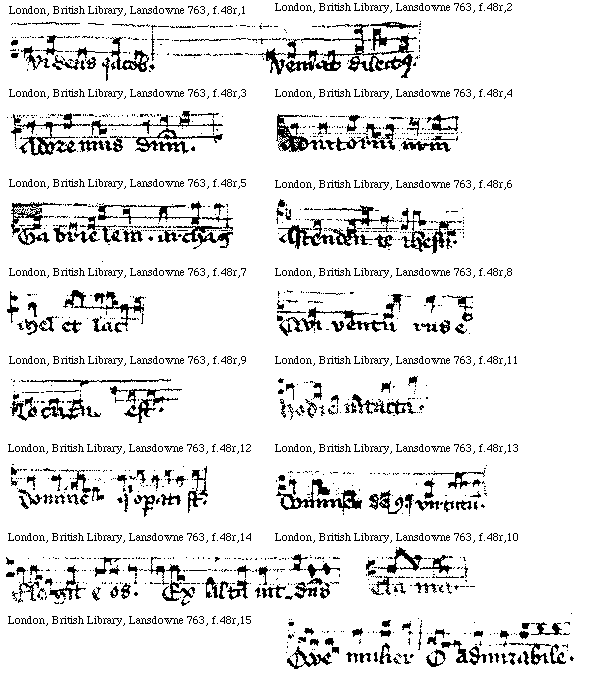 London, British Library, Lansdowne 763, f.48r,1 London, British Library, Lansdowne 763, f.48r,2
Videns jacob. Veniat dilectus
London, British Library, Lansdowne 763, f.48r,3 London, British Library, Lansdowne 763, f.48r,4
Adoremus dnm. Adiutoriu
London, British Library, Lansdowne 763, f.48r,5 London, British Library, Lansdowne 763, f.48r,6
Gabrielem. archag te ihesu.
London, British Library, Lansdowne 763, f.48r,7 London, British Library, Lansdowne 763, f.48r,8
Mel et lac Qui venturus e
London, British Library, Lansdowne 763, f.48r,9 London, British Library, Lansdowne 763, f.48r,11
Locutu est. hodie intacta.
London, British Library, Lansdowne 763, f.48r,12 London, British Library, Lansdowne 763, f.48r,13
domine Domine virtutu.
London, British Library, Lansdowne 763, f.48r,14 London, British Library, Lansdowne 763, f.48r,10
os. Ex Clama.
London, British Library, Lansdowne 763, f.48r,15
mulier O admirabile.